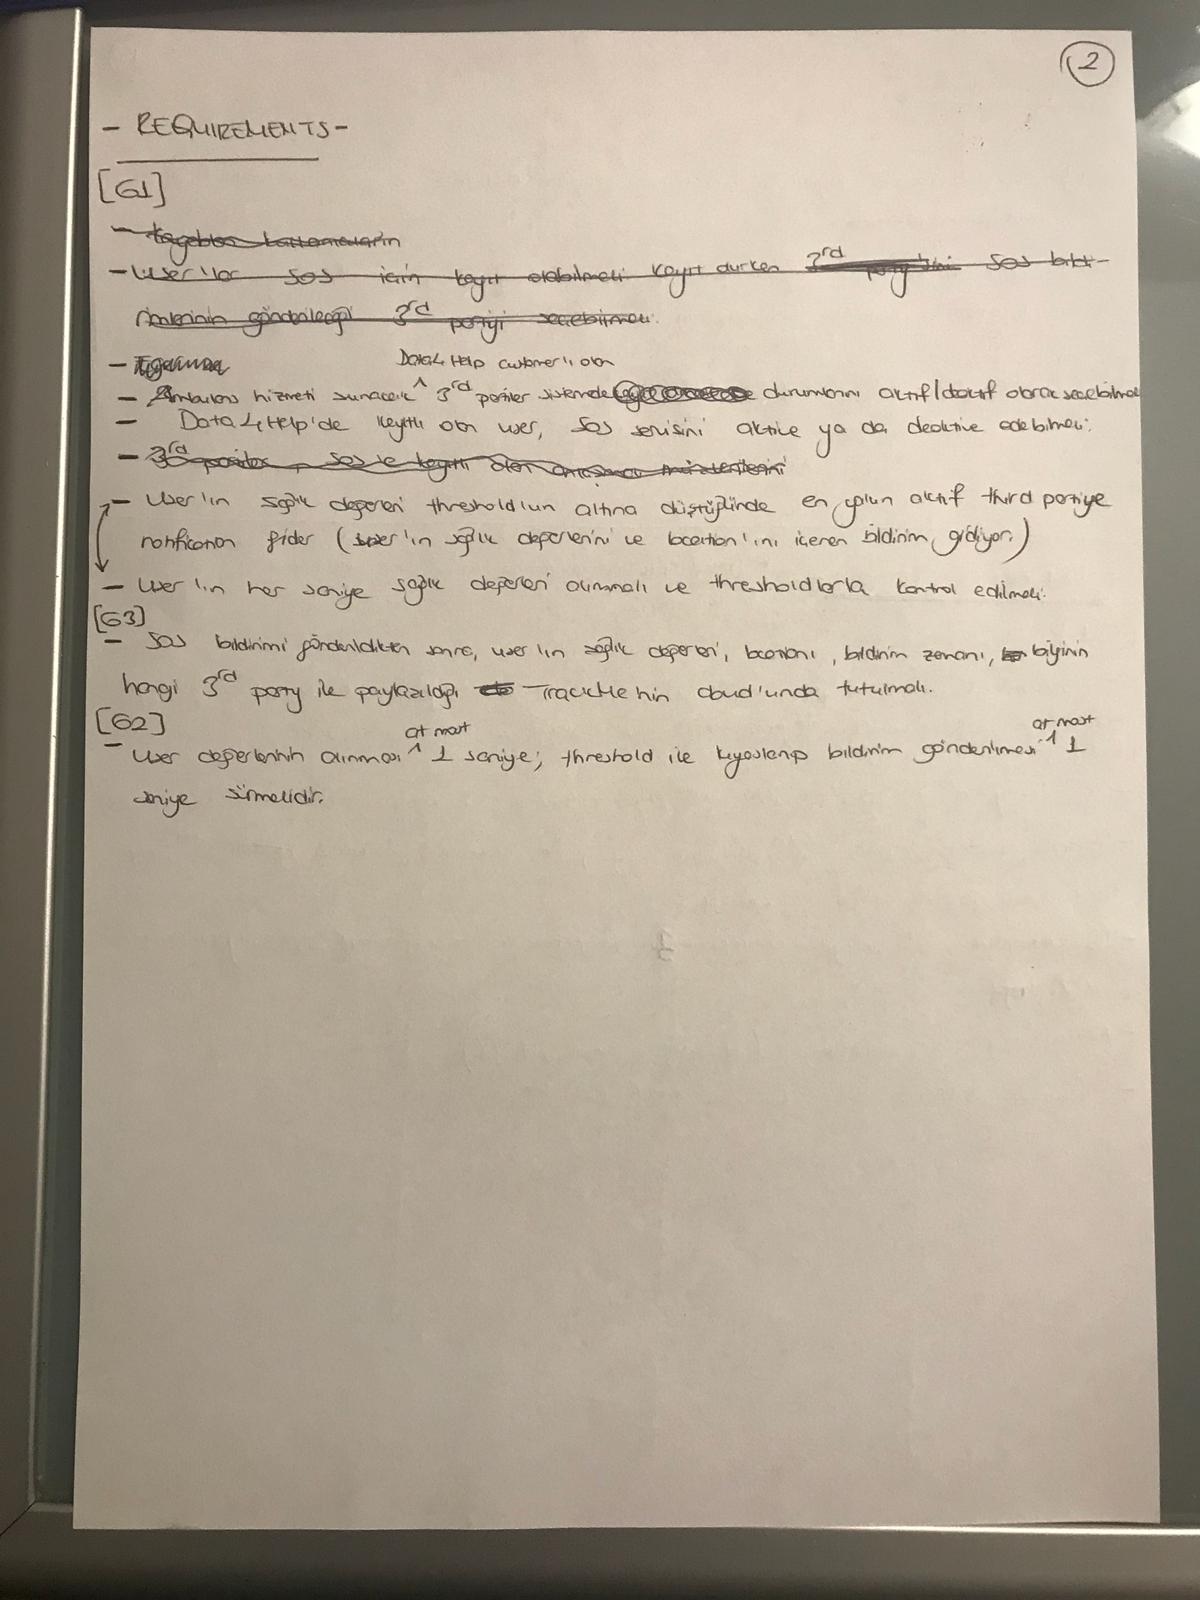 2
- REQUIREMENTS -
[G1]
- User'lar SOS için kayıt olabilmeli kayıt olurken 3rd party'sini SOS bildi-
rimlerinin gönderileceği 3rd partiyi seçebilmeli.
-
Data4Help customer'ı olan
- Ambulans hizmeti sunacak ^ 3rd partiler sistemde durumlarını aktif/deaktif olarak seçebilmeli
- Data4Help'de kayıtlı olan user, SOS servisini aktive ya da deaktive edebilmeli.
- 3rd partiler, SOS'e kayıtlı olan müşterilerini
- User'ın sağlık değerleri threshold'un altına düştüğünde en yakın aktif third partiye
notification gider (user'ın sağlık değerlerini ve location'ını içeren bildirim gidiyor.)
- User'ın her saniye sağlık değerleri alınmalı ve thresholdlarla kontrol edilmeli.
[G3]
- SOS bildirimi gönderildikten sonra, user'ın sağlık değerleri, locationı, bildirim zamanı, bilginin
hangi 3rd party ile paylaşıldığı TrackMe'nin cloud'unda tutulmalı.
[G2]
at most at most
- User değerlerinin alınması ^ 1 saniye; threshold ile kıyaslanıp bildirim gönderilmesi ^ 1
saniye sürmelidir.